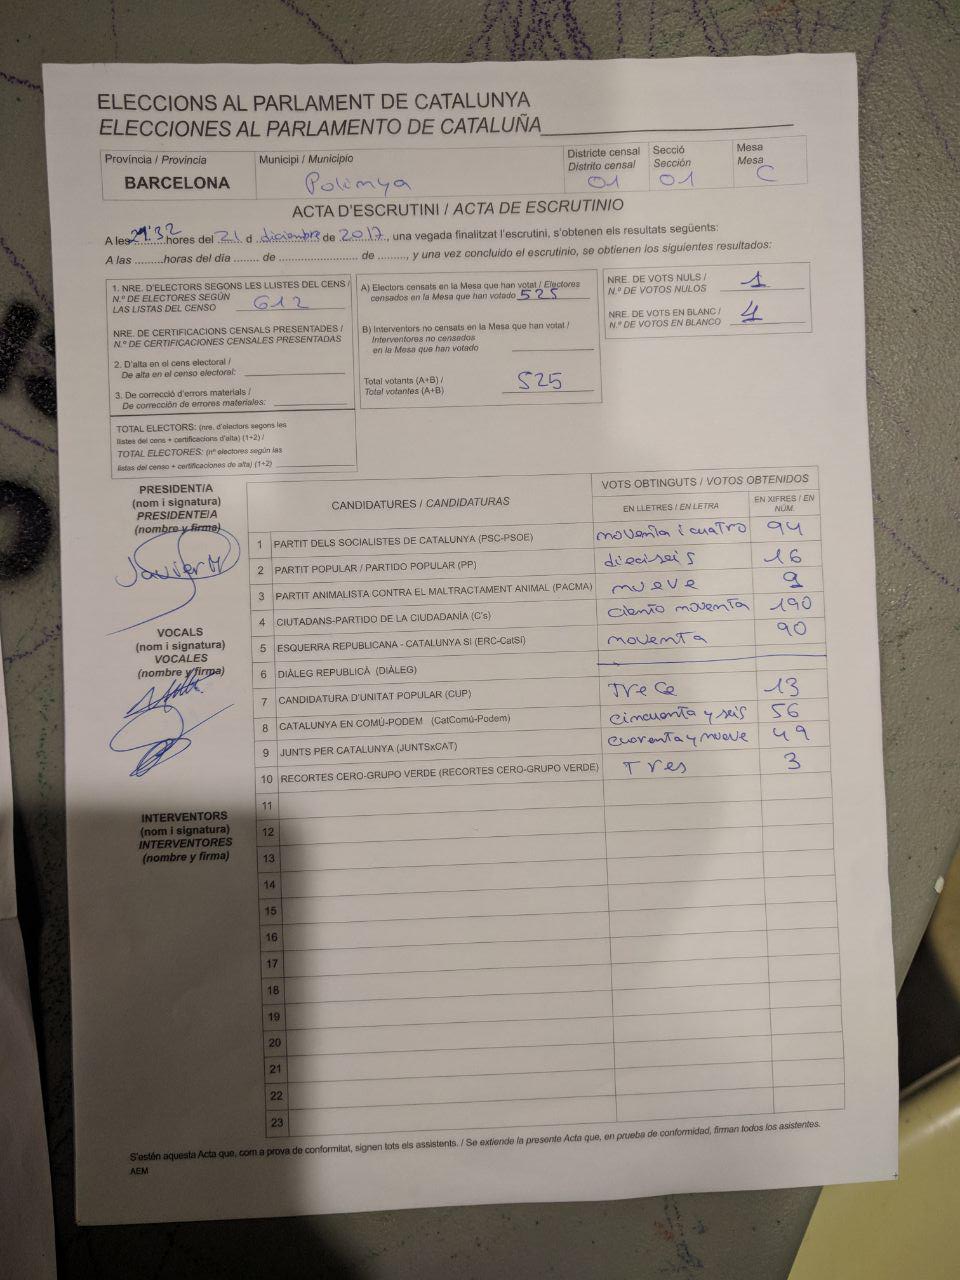 ELECCIONS AL PARLAMENT DE CATALUNYA
ELECCIONES AL PARLAMENTO DE CATALUÑA
Província / Provincia
BARCELONA
Municipi / Municipio
Polinya
Districte censal
Distrito censal
01
Secció
Sección
01
Mesa
Mesa
C
ACTA D'ESCRUTINI / ACTA DE ESCRUTINIO
A les 21:32 hores del 21 d diciembre de 2017, una vegada finalitzat l'escrutini, s'obtenen els resultats següents:
A las .........horas del día ....... de ....................... de ........, y una vez concluido el escrutinio, se obtienen los siguientes resultados:
1. NRE. D'ELECTORS SEGONS LES LLISTES DEL CENS /
N.º DE ELECTORES SEGÚN
LAS LISTAS DEL CENSO 612
NRE. DE CERTIFICACIONS CENSALS PRESENTADES /
N.º DE CERTIFICACIONES CENSALES PRESENTADAS
2. D'alta en el cens electoral /
De alta en el censo electoral:
3. De correcció d'errors materials /
De corrección de errores materiales:
TOTAL ELECTORS: (nre. d'electors segons les
llistes del cens + certificacions d'alta) (1+2) /
TOTAL ELECTORES: (nº electores según las
listas del censo + certificaciones de alta) (1+2)
A) Electors censats en la Mesa que han votat / Electores
censados en la Mesa que han votado 525
B) Interventors no censats en la Mesa que han votat /
Interventores no censados
en la Mesa que han votado
Total votants (A+B) /
Total votantes (A+B) 525
NRE. DE VOTS NULS /
N.º DE VOTOS NULOS 1
NRE. DE VOTS EN BLANC /
N.º DE VOTOS EN BLANCO 4
PRESIDENT/A
(nom i signatura)
PRESIDENTE/A
(nombre y firma)
Javier M
VOCALS
(nom i signatura)
VOCALES
(nombre y firma)
INTERVENTORS
(nom i signatura)
INTERVENTORES
(nombre y firma)
CANDIDATURES / CANDIDATURAS
VOTS OBTINGUTS / VOTOS OBTENIDOS
EN LLETRES / EN LETRA
EN XIFRES / EN NÚM.
1 PARTIT DELS SOCIALISTES DE CATALUNYA (PSC-PSOE) noventa i cuatro 94
2 PARTIT POPULAR / PARTIDO POPULAR (PP) dieciseis 16
3 PARTIT ANIMALISTA CONTRA EL MALTRACTAMENT ANIMAL (PACMA) nueve 9
4 CIUTADANS-PARTIDO DE LA CIUDADANÍA (C's) ciento noventa 190
5 ESQUERRA REPUBLICANA - CATALUNYA SÍ (ERC-CatSí) noventa 90
6 DIÀLEG REPUBLICÀ (DIÀLEG)
7 CANDIDATURA D'UNITAT POPULAR (CUP) Trece 13
8 CATALUNYA EN COMÚ-PODEM (CatComú-Podem) cincuenta y seis 56
9 JUNTS PER CATALUNYA (JUNTSxCAT) cuarenta y nueve 49
10 RECORTES CERO-GRUPO VERDE (RECORTES CERO-GRUPO VERDE) Tres 3
11
12
13
14
15
16
17
18
19
20
21
22
23
S'estén aquesta Acta que, com a prova de conformitat, signen tots els assistents. / Se extiende la presente Acta que, en prueba de conformidad, firman todos los asistentes.
AEM